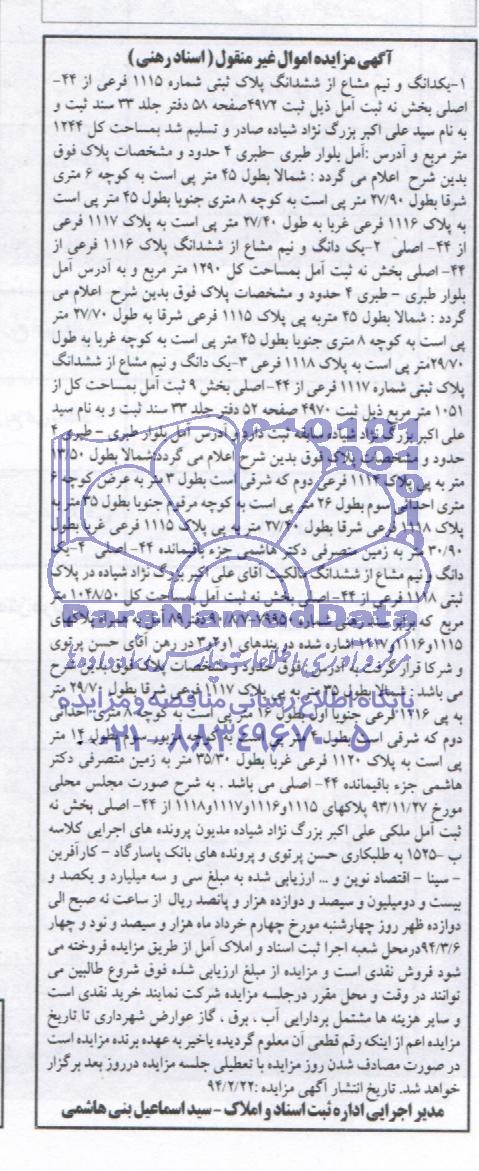 آگهی مزایده اموال غیر منقول (اسناد رهنی)
۱-یکدانگ و نیم مشاع از ششدانگ پلاک ثبتی شماره ۱۱۱۵ فرعی از ۴۴-
اصلی بخش نه ثبت آمل ذیل ثبت ۴۹۷۲صفحه ۵۸ دفتر جلد ۳۳ سند ثبت و
به نام سید علی اکبر بزرگ نژاد شیاده صادر و تسلیم شد بمساحت کل ۱۲۴۴
متر مربع و آدرس :آمل بلوار طبری –طبری ۴ حدود و مشخصات پلاک فوق
بدین شرح اعلام می گردد : شمالا بطول ۴۵ متر پی است به کوچه ۶ متری
شرقا بطول ۲۷/۹۰ متر پی است به کوچه ۸ متری جنوبا بطول ۴۵ متر پی است
به پلاک ۱۱۱۶ فرعی غربا به طول ۲۷/۴۰ متر پی است به پلاک ۱۱۱۷ فرعی
از ۴۴- اصلی ۲-یک دانگ و نیم مشاع از ششدانگ پلاک ۱۱۱۶ فرعی از
۴۴- اصلی بخش نه ثبت آمل بمساحت کل ۱۲۹۰ متر مربع و به آدرس آمل
بلوار طبری – طبری ۴ حدود و مشخصات پلاک فوق بدین شرح اعلام می
گردد : شمالا بطول ۴۵ متربه پی پلاک ۱۱۱۵ فرعی شرقا به طول ۲۷/۷۰ متر
پی است به کوچه ۸ متری جنوبا بطول ۴۵ متر پی است به کوچه غربا به طول
۲۹/۷۰متر پی است به پلاک ۱۱۱۸ فرعی ۳-یک دانگ و نیم مشاع از ششدانگ
پلاک ثبتی شماره ۱۱۱۷ فرعی از ۴۴-اصلی بخش ۹ ثبت آمل بمساحت کل از
۱۰۵۱ متر مربع ذیل ثبت ۴۹۷۰ صفحه ۵۲ دفتر جلد ۳۳ سند ثبت و به نام سید
علی اکبر بزرگ نژاد شیاده سابقه ثبت دارد و آدرس آمل بلوار طبری – طبری ۴
حدود و مشخصات پلاک فوق بدین شرح اعلام می گردد شمالا بطول ۱۳/۵۰
متر به پی پلاک ۱۱۱۴ فرعی دوم که شرقی است بطول ۳ متر به عرض کوچه ۶
متری احداثی سوم بطول ۲۶ متر پی است به کوچه مرقوم جنوبا بطول ۳۵ متر به
پلاک ۱۱۱۸ فرعی شرقا بطول ۲۷/۴۰ متر به پی پلاک ۱۱۱۵ فرعی غربا بطول
۳۰/۹۰ متر به زمین متصرفی دکتر هاشمی جزء باقیمانده ۴۴- اصلی ۴-یک
دانگ و نیم مشاع از ششدانگ مالکیت آقای علی اکبر بزرگ نژاد شیاده در پلاک
ثبتی ۱۱۱۸ فرعی از ۴۴-اصلی بخش نه ثبت آمل بمساحت کل ۱۰۴۸/۵۰ متر
مربع که برابر سند رهنی شماره ۷۹۹۵۰-۹۰/۸/۷ دفتر ۸۹ آمل به همراه پلاکهای
۱۱۱۵و۱۱۱۶و۱۱۱۷ اشاره شده در بندهای ۱و۲و۳ در رهن آقای حسن پرتوی
و شرکا قرار گرفت به آدرس فوق حدود و مشخصات پلاک فوق بدین شرح
می باشد : شمالا بطول ۳۵ متر به پی پلاک ۱۱۱۷ فرعی شرقا بطول ۲۹/۷۰ متر
به پی ۱۲۱۶ فرعی جنوبا اول بطول ۱۶ متر پی است به کوچه ۸ متری احداثی
دوم که شرقی است بطول ۴ متر پی است به کوچه مزبور سوم بطول ۱۴ متر
پی است به پلاک ۱۱۲۰ فرعی غربا بطول ۳۵/۳۰ متر به زمین متصرفی دکتر
هاشمی جزء باقیمانده ۴۴- اصلی می باشد . به شرح صورت مجلس محلی
مورخ ۹۳/۱۱/۲۷ پلاکهای ۱۱۱۵و۱۱۱۶و۱۱۱۷و۱۱۱۸ از ۴۴- اصلی بخش نه
ثبت آمل ملکی علی اکبر بزرگ نژاد شیاده مدیون پرونده های اجرایی کلاسه
ب -۱۵۲۵ به طلبکاری حسن پرتوی و پرونده های بانک پاسارگاد – کارآفرین
– سینا – اقتصاد نوین و ... ارزیابی شده به مبلغ سی و سه میلیارد و یکصد و
بیست و دومیلیون و سیصد و دوازده هزار و پانصد ریال از ساعت نه صبح الی
دوازده ظهر روز چهارشنبه مورخ چهارم خرداد ماه هزار و سیصد و نود و چهار
۹۴/۳/۶درمحل شعبه اجرا ثبت اسناد و املاک آمل از طریق مزایده فروخته می
شود فروش نقدی است و مزایده از مبلغ ارزیابی شده فوق شروع طالبین می
توانند در وقت و محل مقرر درجلسه مزایده شرکت نمایند خرید نقدی است
و سایر هزینه ها مشتمل بردارایی آب ، برق ، گاز عوارض شهرداری تا تاریخ
مزایده اعم از اینکه رقم قطعی آن معلوم گردیده یاخیر به عهده برنده مزایده است
در صورت مصادف شدن روز مزایده با تعطیلی جلسه مزایده درروز بعد برگزار
خواهد شد. تاریخ انتشار آگهی مزایده :۹۴/۲/۲۲
مدیر اجرایی اداره ثبت اسناد و املاک – سید اسماعیل بنی هاشمی
ParsNamadData
پایگاه اطلاع رسانی مناقصه و مزایده
۰۲۱-۸۸۳۴۹۶۷۰-۵